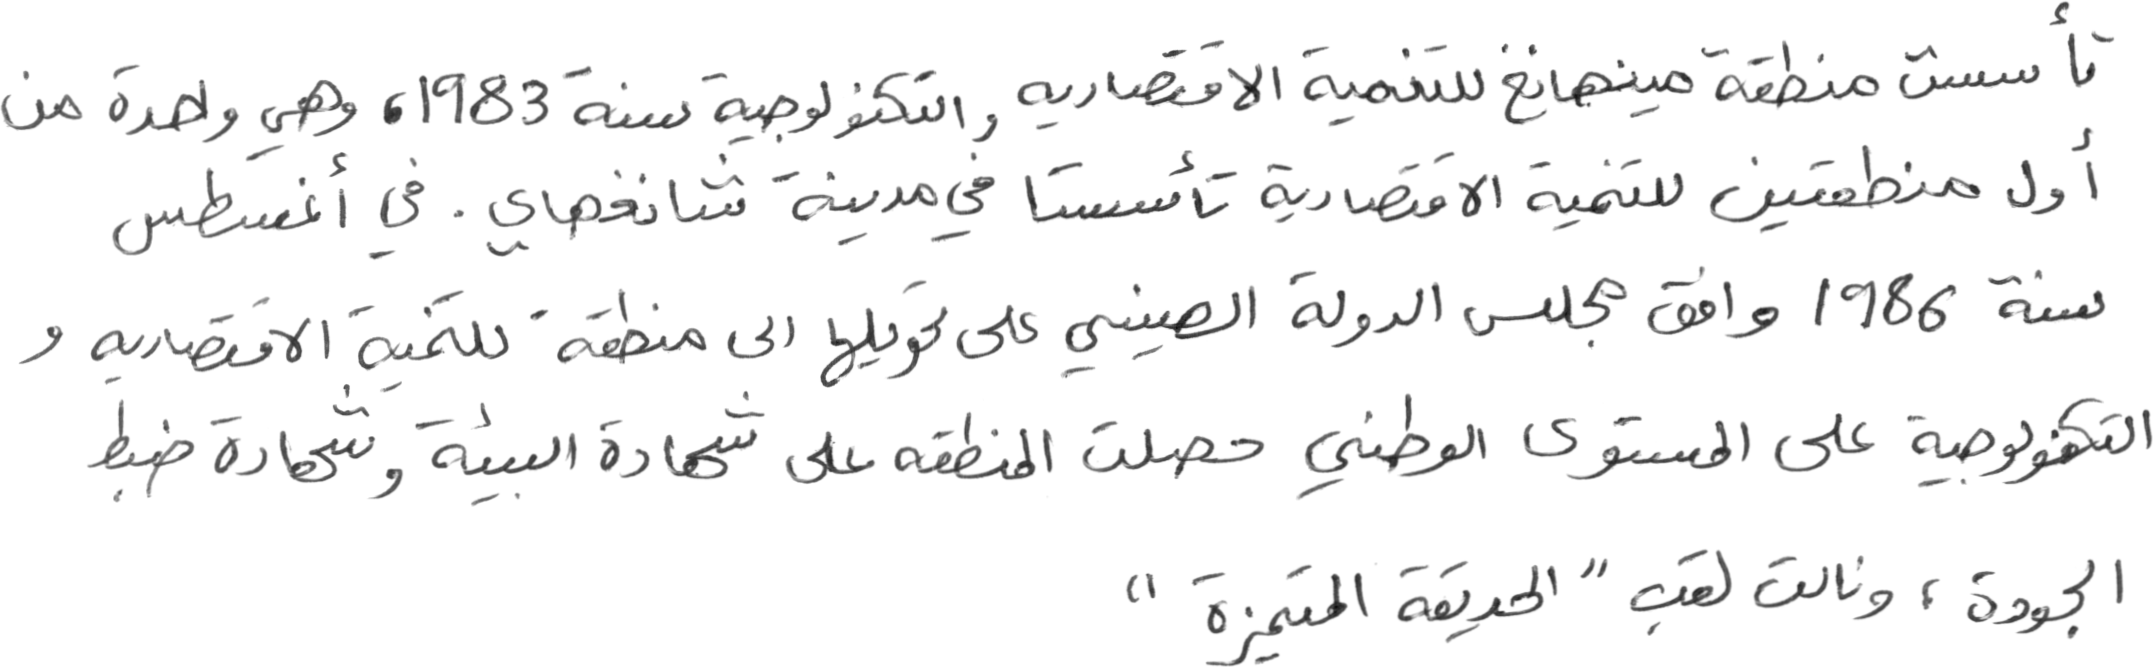 تأسست منطقة مينهانغ للتنمية الاقتصاديه والتكنولوجية سنة 1983، وهي واحدة من
أول منطقتين للتنمية الاقتصادية تأسستا في مدينة شانغهاي. في أغسطس
سنة 1986 وافق مجلس الدولة الصيني على تحويلها الى منطقة للتنمية الاقتصاديه و
التكنولوجية على المستوى الوطني حصلت المنطقه على شهادة البيئة وشهادة ضبط
الجودة، ونالت لقب "الحديقة المتميزة"